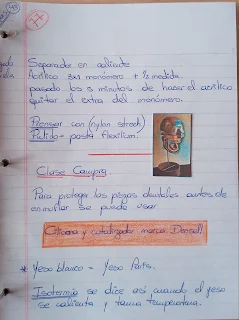 Separador en adivente
Acrílico 3x1 monómero + 1/2 medida
pasado los 3 minutos de hacer el acrílico
quitar el extra del monómero.
Prensar con (nylon strech)
pasta flexilium.
Clase Campra
Para proteger las piezas dentales antes de
enmuflar se puede usar
Citocina y catalizador marca Densell
* Yeso blanco = Yeso París.
Isotermia se dice así cuando el yeso
se calienta y toma temperatura.